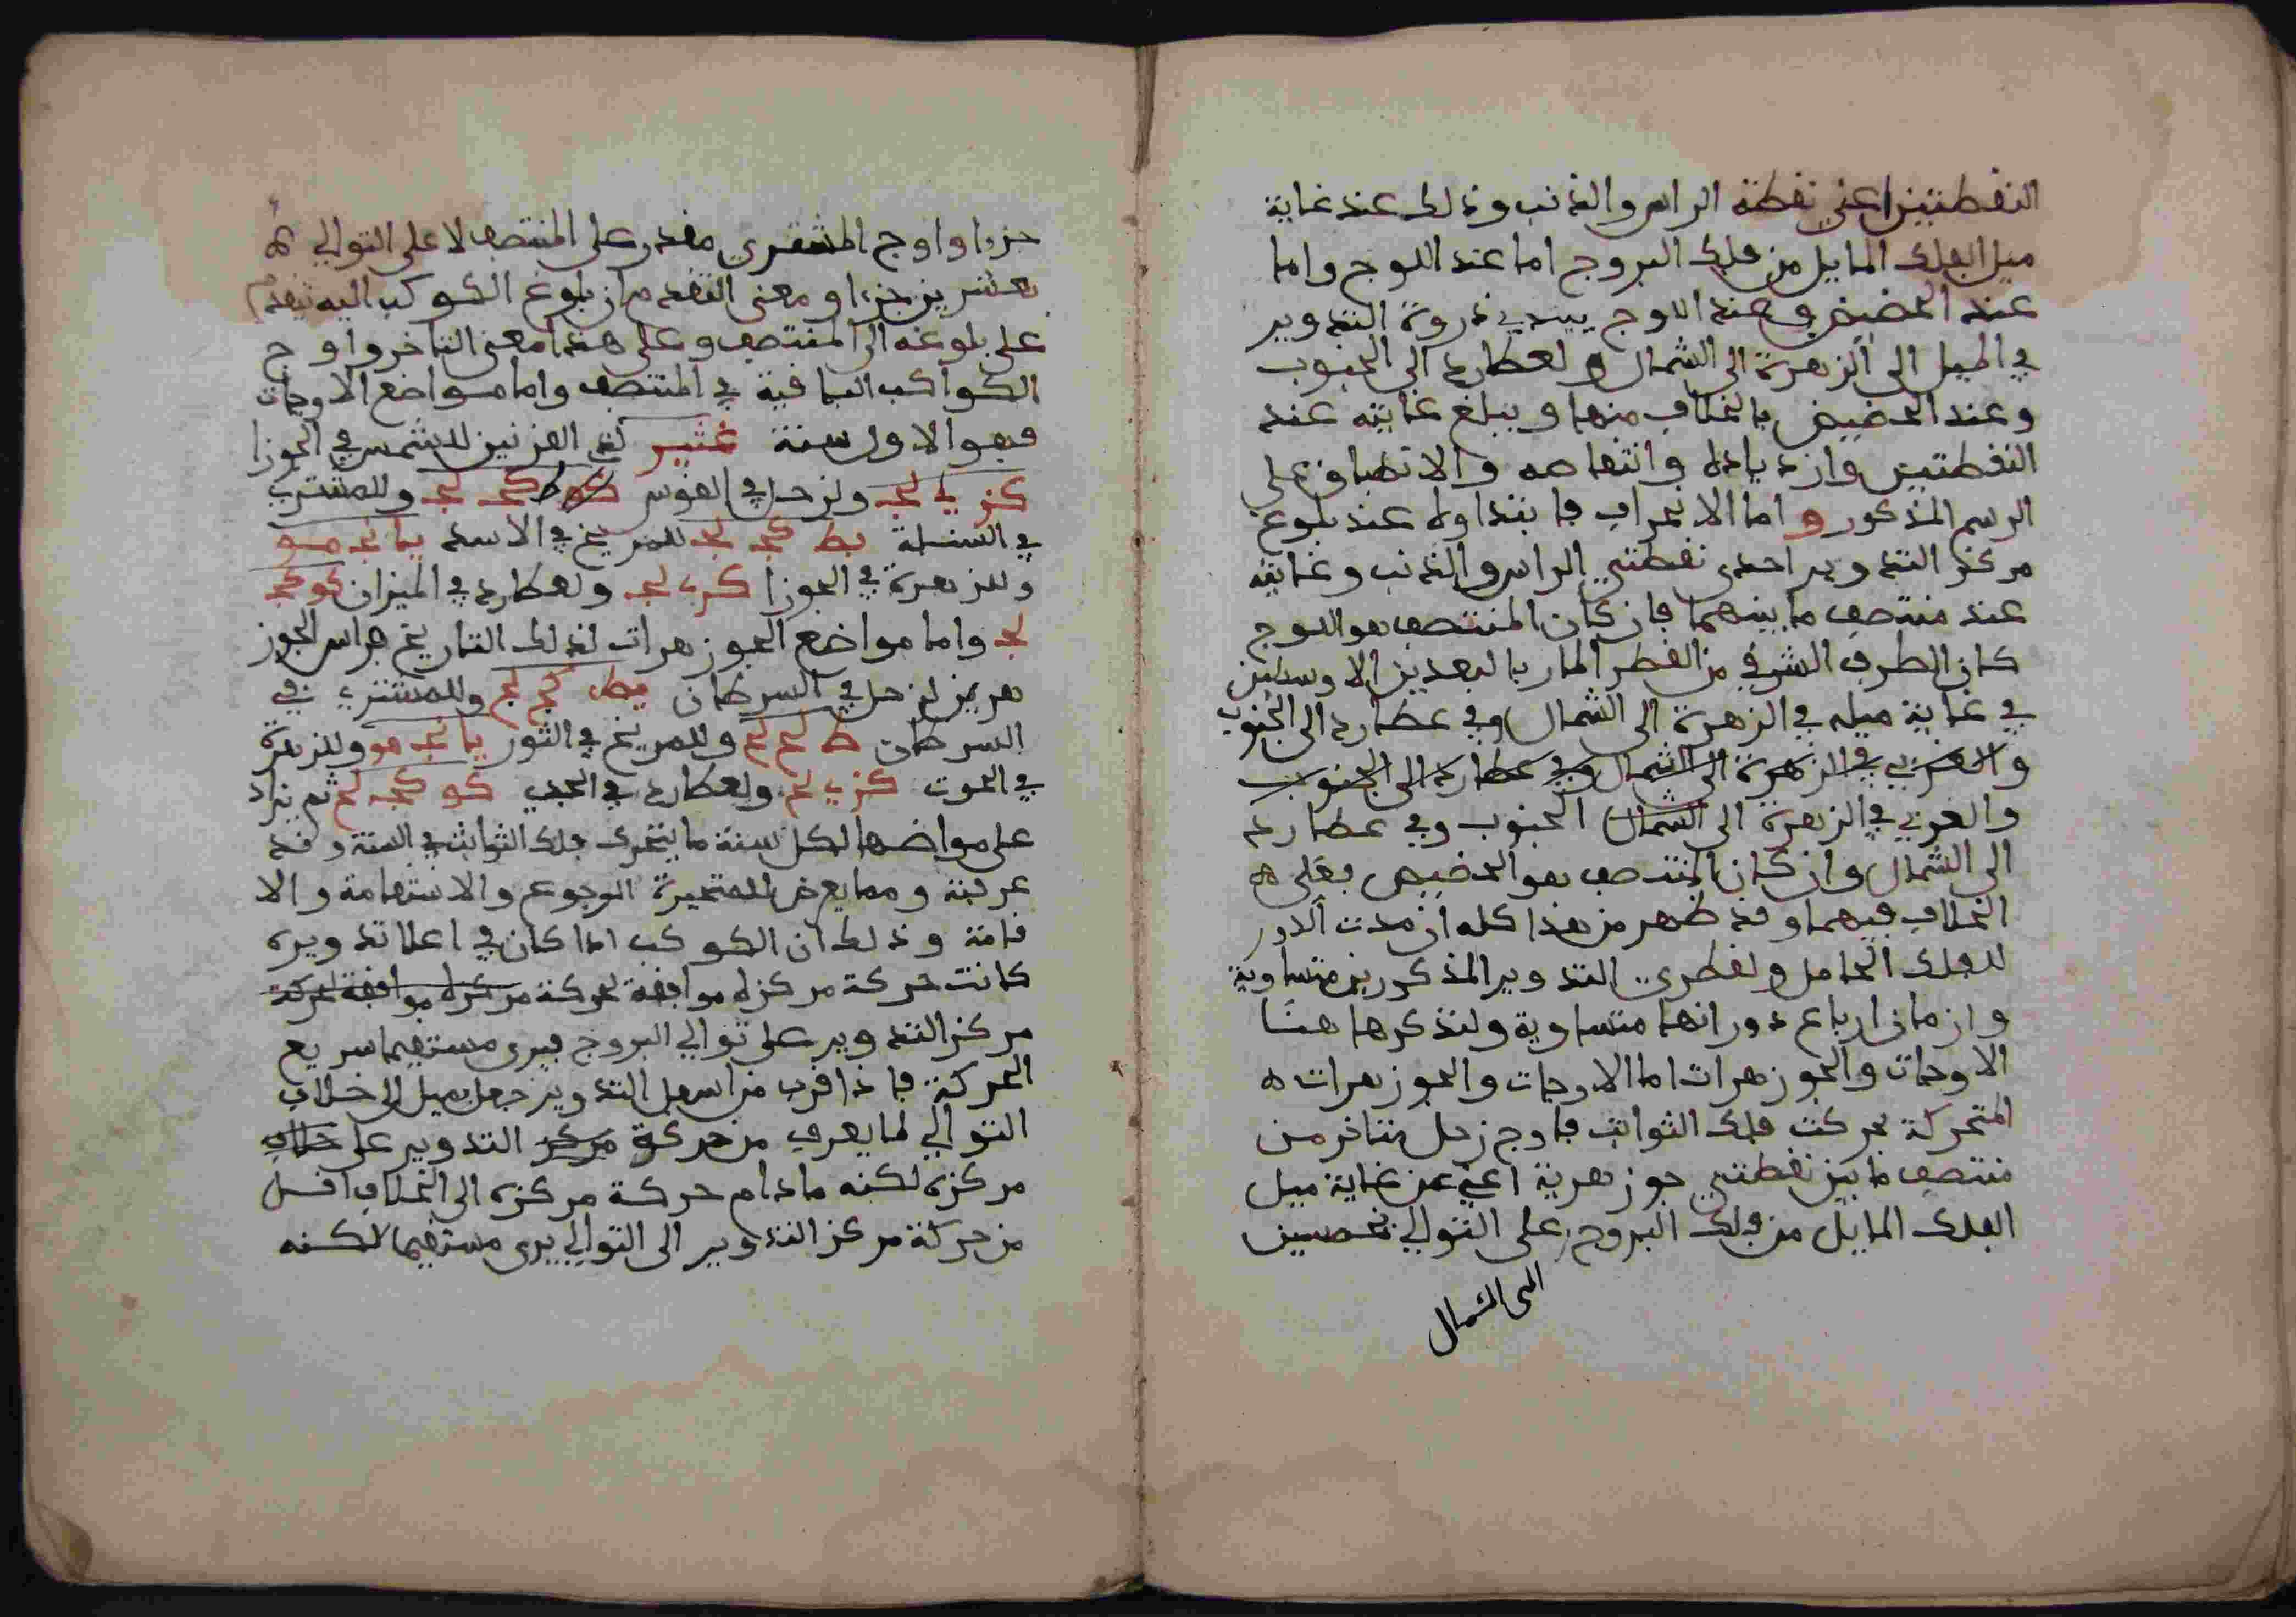 النقطتين اعني نقطة الراس والذنب وذلك عند غاية
ميل الفلك المايل من فلك البروج اما عند الاوج واما
عند الحضيض وعند الاوج يبتدي ذروة التدوير
في الميل الى الزهرة الى الشمال ولعطارد الى الجنوب
وعند الحضيض بالخلاف منهما ويبلغ غايته عند
النقطتين وازدياده وانتقاصه والانطباق على
الرسم المذكور واما الانحراف فابتداوه عند بلوغ
مركز التدوير احدى نقطتي الراس والذنب وغايته
عند منتصف ما بينهما فان كان المنتصف هو الاوج
كان الطرف الشرقي من القطر المار بالبعدين الاوسطين
في غاية ميله في الزهرة الى الشمال وفي عطارد الى الجنوب
والغربي في الزهرة الى الشمال وفي عطارد الى الجنوب
والغربي في الزهرة الى الشمال الجنوب وفي عطارد
الى الشمال وان كان المنتصف هو الحضيض فعلى
الخلاف فيهما وقد ظهر من هذا كله ان مدت الدور
للفلك الحامل ولقطري التدوير المذكورين متساوية
وازمان ارباع دورانها متساوية ولنذكرها هنا
الاوجات والجوزهرات اما الاوجات والجوزهرات ه
المتحركة بحركت فلك الثوابت فاوج زحل متاخر من
منتصف ما بين نقطتي جوزهرية اعني عن غاية ميل
الفلك المايل من فلك البروج على التوالي بخمسين
الى الشمال
جزءا واوج المشتري مقدم على المنتصف لا على التوالي
بعشرين جزءا ومعنى التقدم ان بلوغ الكوكب اليه تقدم
على بلوغه الى المنتصف وعلى هذا معنى التاخر واوج
الكواكب الباقية في المنتصف واما مواضع الاوجات
فهو الاول سنة غثير لذي القرنين للشمس في الجوزا
كز ي لج ولزحل في القوس كط كج لج وللمشتري
في السنبلة يط كج لج للمريخ في الاسد يا نج مو
وللزهرة في الجوزا كز ي لج ولعطارد في الميزان كو كج
لج واما مواضع الجوزهرات لذلك التاريخ فراس الجوز
هرين لزحل في السرطان يط كج لج وللمشتري في
السرطان ط كج لج وللمريخ في الثور يا نج مو وللزهرة
في الحوت كز ي لج ولعطارد في الجدي كو كج لج ثم يزاد
على مواضعها لكل سنة ما يتحرك فلك الثوابت في السنة وقد
عرفته ومما يعرض للمتحيرة الرجوع والاستقامة والا
قامة وذلك ان الكوكب اذا كان في اعلا تدويره
كانت حركة مركزه موافقة لحركة مركزه موافقة لحركة
مركز التدوير على توالي البروج فيرى مستقيما سريع
الحركة فاذا قرب من اسفل التدوير جعل يميل الى خلاف
التوالي لما يعرف من حركة مركز التدوير على خلاف
مركزه لكنه مادام حركة مركزه الى الخلاف اقل
من حركة مركز التدوير الى التوالي يرى مستقيما لكنه